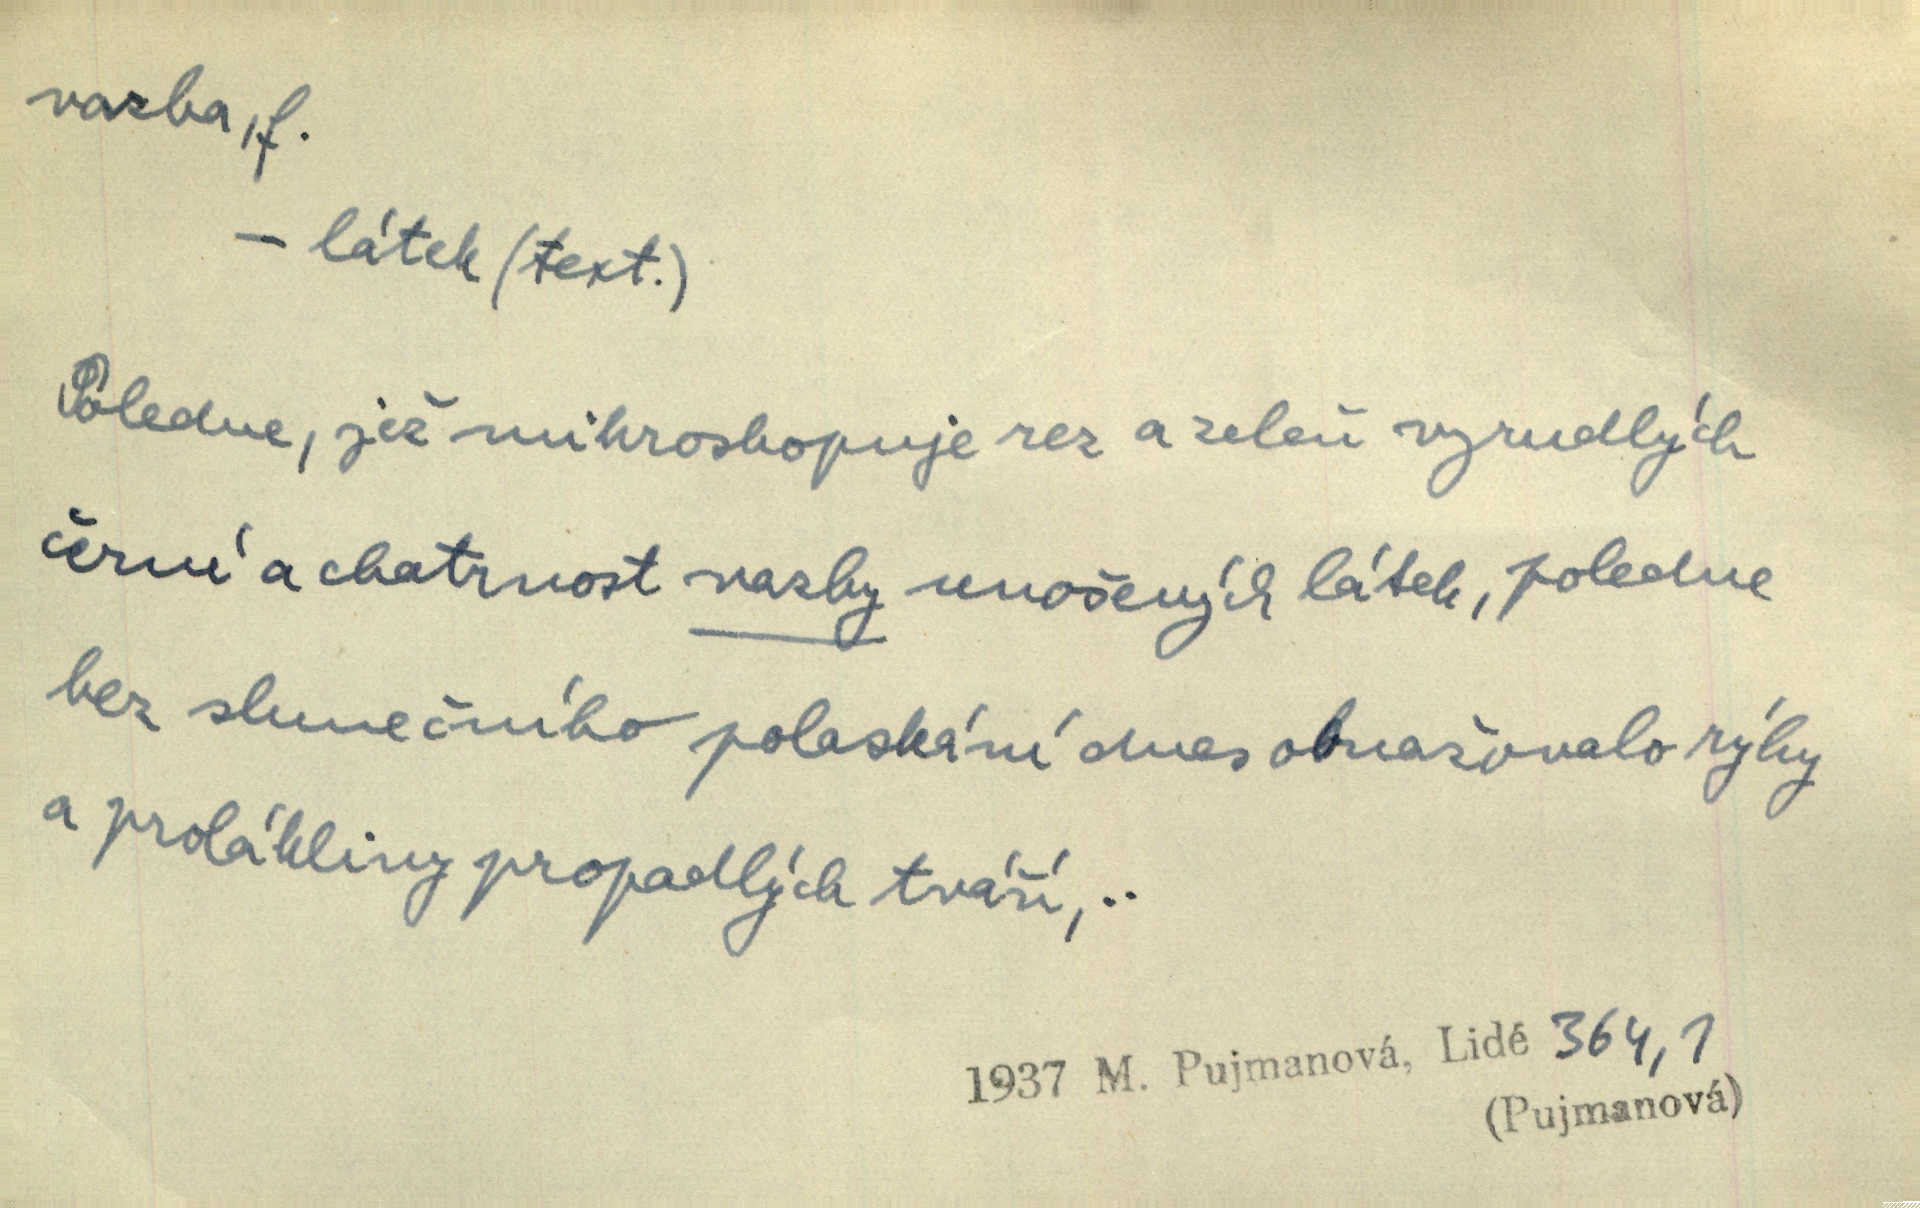 vazba, f.
– látek (text.)
Poledne, jež mikroskopuje rez a zeleň vyrudlých
černí a chatrnost vazby unošených látek, poledne
bez slunečního polaskání dnes obnažovalo rýhy
a prolákliny propadlých tváří, ..
1937 M. Pujmanová, Lidé 364,1
(Pujmanová)